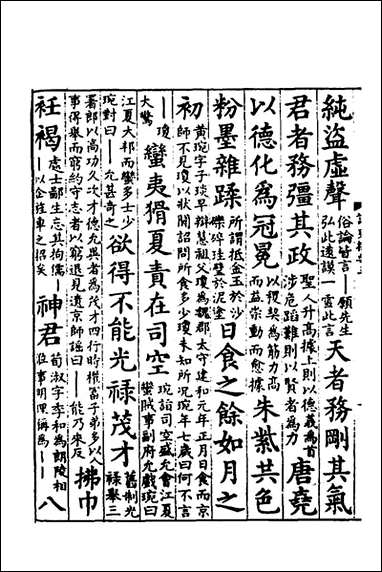 純盜虛聲俗論皆言——願先生弘此遠謨一雪此言天者務剛其氣
君者務彊其政聖人升高據上則以德義爲首涉危蹈難則以賢者爲力唐堯
以德化爲冠冕以稷契爲筋力高而益崇動而愈據朱紫共色
粉墨雜蹂所謂抵金玉於沙礫碎珪璧於泥塗日食之餘如月之
初黃琬字子琰早辯慧祖父瓊爲魏郡太守建和元年正月日食而京師不見瓊以狀聞詔問所食多少瓊未知所况琬年七歲曰何不言
——瓊大驚蠻夷猾夏責在司空琬詣司空盛允會江夏蠻賊事副府允戲琬曰
江夏大邦而蠻多士少琬對曰——允甚奇之欲得不能光祿茂才舊制光祿舉三
署郎以高功久次才德尤異者爲茂才四行時權富子弟多以人事得舉而窮約守志者以窮退見遺京師謡曰——能乃來反拂巾
衽褐處士鄙生忘其拘儒——以企旌車之招矣神君荀淑字季和爲朗陵相蒞事明理稱爲——八